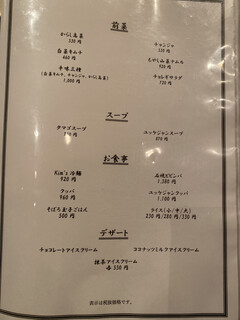 前菜
からし高菜
530 円
チャンジャ
530 円
白菜キムチ
460 円
もやし山菜ナムル
辛味三種
(白菜キムチ、チャンジャ、からし高菜)
1,000 円
チョレギサラダ
720 円
スープ
タマゴスープ
ユッケジャンスープ
870 円
お食事
Kim's 冷麺
920 円
石焼ビビンバ
1,380 円
クッパ
860 円
ユッケジャンクッパ
1,100 円
そぼろ玉子ごはん
500 円
ライス(小/中/大)
230 円/280 円/330 円
デザート
チョコレートアイスクリーム
ココナッツミルクアイスクリーム
抹茶アイスクリーム
各 550 円
表示は税抜価格です。